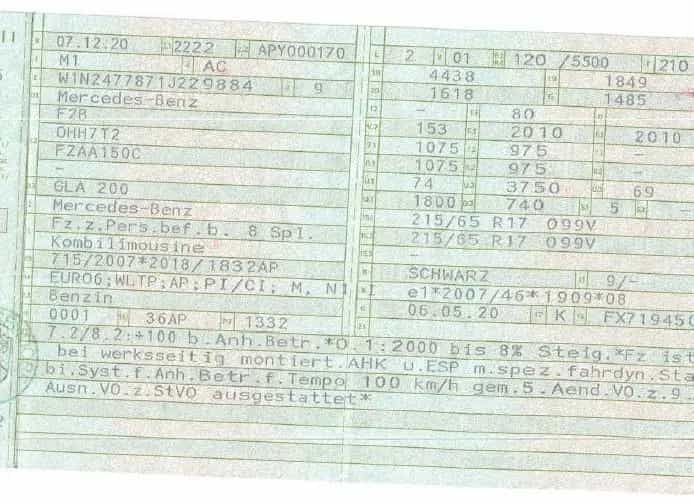 07.12.20 2222 APY000170
M1 AC
W1N2477871J229884 9
Mercedes-Benz
F2B
OHH7T2
FZAA150C
–
GLA 200
Mercedes-Benz
Fz.z.Pers.bef.b. 8 Spl.
Kombilimousine
715/2007*2018/1832AP
EURO6;WLTP;AP;PI/CI; M, N1 I
Benzin
0001 36AP 1332
L 2 9 01 120 /5500 210
4438 1849
1618 1485
– 80
153 2010 2010
1075 975 –
1075 975 –
74 3750 69
1800 740 5
215/65 R17 099V
215/65 R17 099V
–
SCHWARZ 9/–
e1*2007/46*1909*08
06.05.20 K FX719450
7.2/8.2:+100 b.Anh.Betr.*O.1:2000 bis 8% Steig.*Fz ist
bei werksseitig montiert.AHK u.ESP m.spez.fahrdyn.Sta
bi.Syst.f.Anh.Betr.f.Tempo 100 km/h gem.5.Aend.VO.z.9.
Ausn.VO.z.StVO ausgestattet*